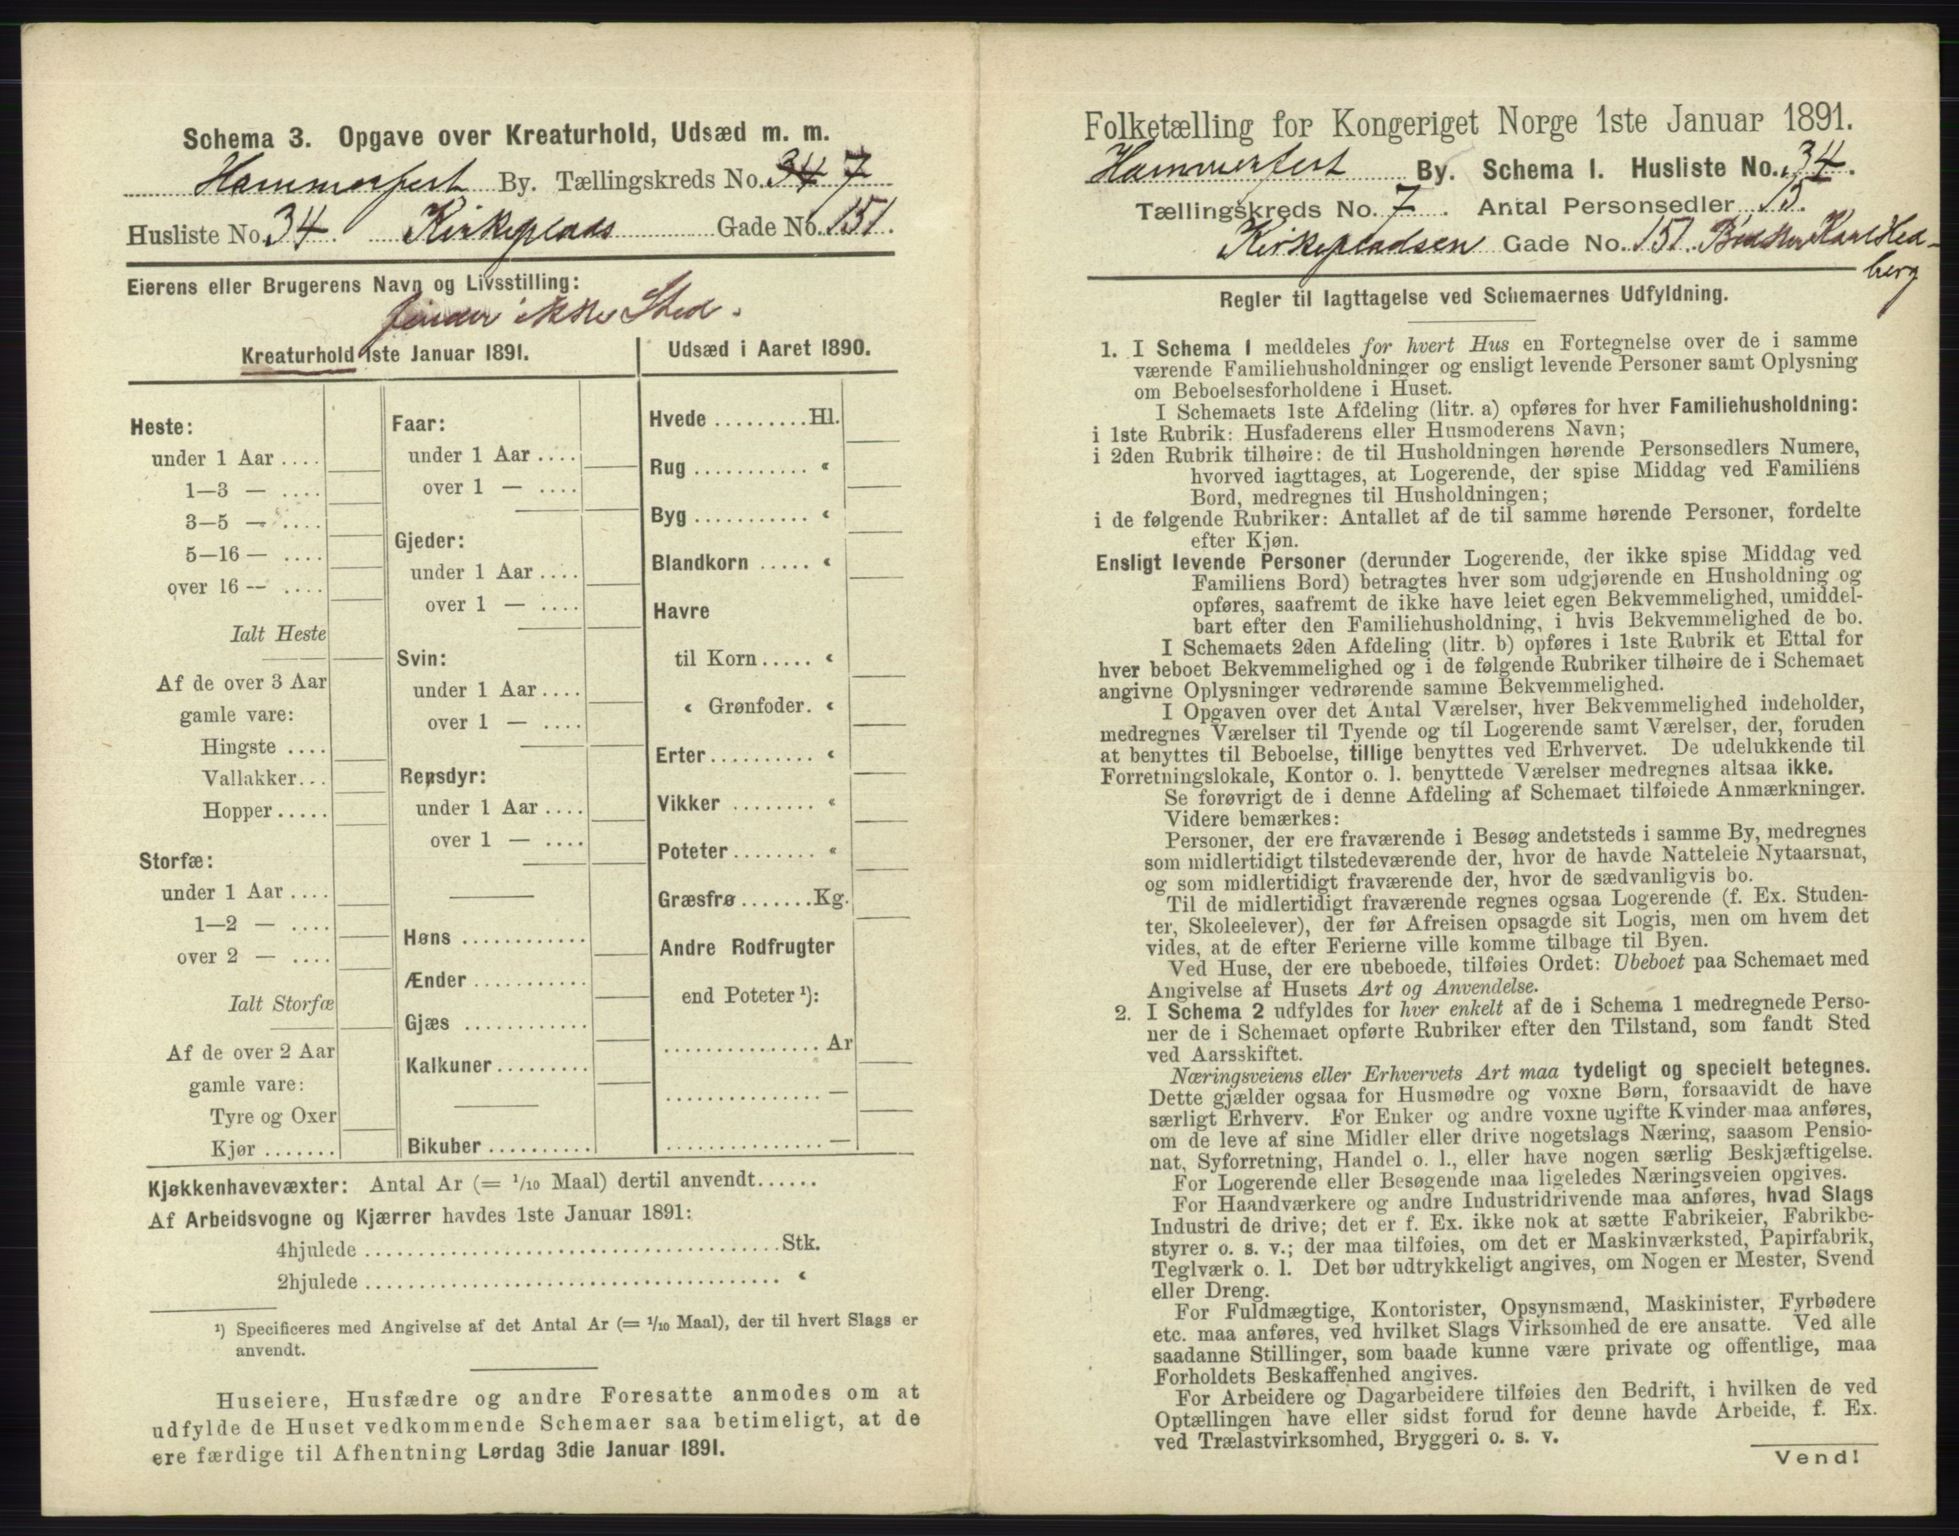 Schema 3. Opgave over Kreaturhold, Udsæd m. m.
Hammerfest By. Tællingskreds No. 34 7
Husliste No. 34. Kirkeplads Gade No. 151.
Eierens eller Brugerens Navn og Livsstilling:
finder ikke Sted.
Kreaturhold 1ste Januar 1891.
Heste:
under 1 Aar ....
1—3 — ....
3—5 — ....
5—16 — ....
over 16 — ....
Ialt Heste
Af de over 3 Aar
gamle vare:
Hingste ....
Vallakker...
Hopper.....
Storfæ:
under 1 Aar ....
1—2 — ....
over 2 — ....
Ialt Storfæ
Af de over 2 Aar
gamle vare:
Tyre og Oxer
Kjør .......
Faar:
under 1 Aar ....
over 1 — ....
Gjeder:
under 1 Aar ....
over 1 — ....
Svin:
under 1 Aar ....
over 1 — ....
Rensdyr:
under 1 Aar ....
over 1 — ....
Høns ............
Ænder ...........
Gjæs ............
Kalkuner.........
Bikuber ..........
Udsæd i Aaret 1890.
Hvede .........Hl.
Rug ........... «
Byg ........... «
Blandkorn ..... «
Havre
til Korn..... «
« Grønfoder. «
Erter.......... «
Vikker ........ «
Poteter........ «
Græsfrø .......Kg.
Andre Rodfrugter
end Poteter ¹):
............... Ar
............... —
............... —
Kjøkkenhavevæxter: Antal Ar (= 1/10 Maal) dertil anvendt......
Af Arbeidsvogne og Kjærrer havdes 1ste Januar 1891:
4hjulede ........................................Stk.
2hjulede ........................................ «
¹) Specificeres med Angivelse af det Antal Ar (= 1/10 Maal), der til hvert Slags er
anvendt.
Huseiere, Husfædre og andre Foresatte anmodes om at
udfylde de Huset vedkommende Schemaer saa betimeligt, at de
ere færdige til Afhentning Lørdag 3die Januar 1891.
Folketælling for Kongeriget Norge 1ste Januar 1891.
Hammerfest By. Schema I. Husliste No. 34.
Tællingskreds No. 7. Antal Personsedler 15.
Kirkepladsen Gade No. 151. Bødker Karl Hed-
berg
Regler til Iagttagelse ved Schemaernes Udfyldning.
1. I Schema 1 meddeles for hvert Hus en Fortegnelse over de i samme
værende Familiehusholdninger og ensligt levende Personer samt Oplysning
om Beboelsesforholdene i Huset.
I Schemaets 1ste Afdeling (litr. a) opføres for hver Familiehusholdning:
i 1ste Rubrik: Husfaderens eller Husmoderens Navn;
i 2den Rubrik tilhøire: de til Husholdningen hørende Personsedlers Numere,
hvorved iagttages, at Logerende, der spise Middag ved Familiens
Bord, medregnes til Husholdningen;
i de følgende Rubriker: Antallet af de til samme hørende Personer, fordelte
efter Kjøn.
Ensligt levende Personer (derunder Logerende, der ikke spise Middag ved
Familiens Bord) betragtes hver som udgjørende en Husholdning og
opføres, saafremt de ikke have leiet egen Bekvemmelighed, umiddel-
bart efter den Familiehusholdning, i hvis Bekvemmelighed de bo.
I Schemaets 2den Afdeling (litr. b) opføres i 1ste Rubrik et Ettal for
hver beboet Bekvemmelighed og i de følgende Rubriker tilhøire de i Schemaet
angivne Oplysninger vedrørende samme Bekvemmelighed.
I Opgaven over det Antal Værelser, hver Bekvemmelighed indeholder,
medregnes Værelser til Tyende og til Logerende samt Værelser, der, foruden
at benyttes til Beboelse, tillige benyttes ved Erhvervet. De udelukkende til
Forretningslokale, Kontor o. l. benyttede Værelser medregnes altsaa ikke.
Se forøvrigt de i denne Afdeling af Schemaet tilføiede Anmærkninger.
Videre bemærkes:
Personer, der ere fraværende i Besøg andetsteds i samme By, medregnes
som midlertidigt tilstedeværende der, hvor de havde Natteleie Nytaarsnat,
og som midlertidigt fraværende der, hvor de sædvanligvis bo.
Til de midlertidigt fraværende regnes ogsaa Logerende (f. Ex. Studen-
ter, Skoleelever), der før Afreisen opsagde sit Logis, men om hvem det
vides, at de efter Ferierne ville komme tilbage til Byen.
Ved Huse, der ere ubeboede, tilføies Ordet: Ubeboet paa Schemaet med
Angivelse af Husets Art og Anvendelse.
2. I Schema 2 udfyldes for hver enkelt af de i Schema 1 medregnede Perso-
ner de i Schemaet opførte Rubriker efter den Tilstand, som fandt Sted
ved Aarsskiftet.
Næringsveiens eller Erhvervets Art maa tydeligt og specielt betegnes.
Dette gjælder ogsaa for Husmødre og voxne Børn, forsaavidt de have
særligt Erhverv. For Enker og andre voxne ugifte Kvinder maa anføres,
om de leve af sine Midler eller drive nogetslags Næring, saasom Pensio-
nat, Syforretning, Handel o. l., eller have nogen særlig Beskjæftigelse.
For Logerende eller Besøgende maa ligeledes Næringsveien opgives.
For Haandværkere og andre Industridrivende maa anføres, hvad Slags
Industri de drive; det er f. Ex. ikke nok at sætte Fabrikeier, Fabrikbe-
styrer o. s. v.; der maa tilføies, om det er Maskinværksted, Papirfabrik,
Teglværk o. l. Det bør udtrykkeligt angives, om Nogen er Mester, Svend
eller Dreng.
For Fuldmægtige, Kontorister, Opsynsmænd, Maskinister, Fyrbødere
etc. maa anføres, ved hvilket Slags Virksomhed de ere ansatte. Ved alle
saadanne Stillinger, som baade kunne være private og offentlige, maa
Forholdets Beskaffenhed angives.
For Arbeidere og Dagarbeidere tilføies den Bedrift, i hvilken de ved
Optællingen have eller sidst forud for denne havde Arbeide, f. Ex.
ved Trælastvirksomhed, Bryggeri o. s. v.
Vend!